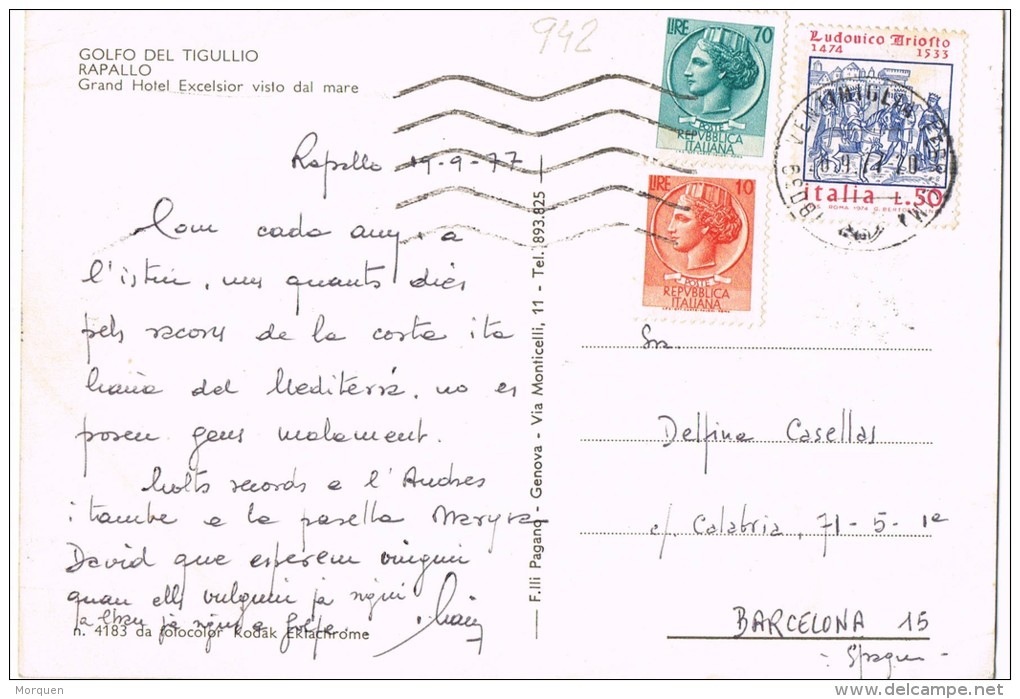 942
GOLFO DEL TIGULLIO
RAPALLO
Grand Hotel Excelsior visto dal mare
LIRE 70
POSTE
REPVBBLICA
ITALIANA
Ludovico Ariosto
1474 1533
italia L.50
VENTIMIGLIA
LIRE 10
POSTE
REPVBBLICA
ITALIANA
Rapallo 19-9-77
Com cada any, a
l'istiu, uns quants dies
pels racons de la costa ita
liana del Mediterrà, no es
posen gens malament.
Molts records a l'Andres
i tambe a la parella
David que esperem vinguin
quan ells vulguin ja sigui
a ja sigui a
n. 4183 da fotocolor Kodak Ektachrome
F.lli Pagano - Genova - Via Monticelli, 11 - Tel. 893.825
Sra.
Delfina Casellas
c/. Calabria, 71-5-1ª
BARCELONA 15
- Spagna -
Morquen
www.delcampe.net